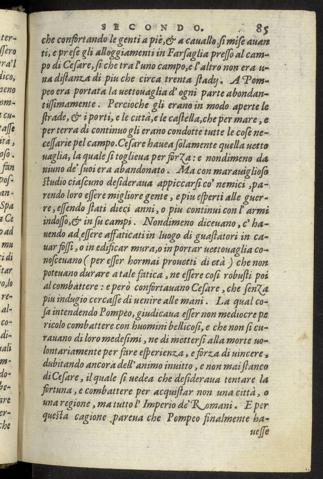 SECONDO. 85
che confortando le genti a piè, & a cauallo, si mise auan
ti, e prese gli alloggiamenti in Farsaglia presso al cam-
po di Cesare, sì che tra l'uno campo, e l'altro non era u-
na distanza di piu che circa trenta stady. A Pom-
peo era portata la uettouaglia d'ogni parte abondan-
tissimamente. Percioche gli erano in modo aperte le
strade, & i porti, e le città, e le castella, che per mare, e
per terra di continuo gli erano condotte tutte le cose ne-
cessarie pel campo. Cesare haueua solamente quella uetto
uaglia, la quale si toglieua per forza: e nondimeno da
niuno de' suoi era abandonato. Ma con marauiglioso
studio ciascuno desideraua appiccarsi co' nemici, pa-
rendo loro essere migliore gente, e piu esperti alle guer-
re, essendo stati dieci anni, o piu continui con l'armi
indosso, & in su campi. Nondimeno diceuano, c'ha-
uendo ad essere affaticati in luogo di guastatori in ca-
uar fossi, o in edificar mura, o in portar uettouaglia co-
nosceuano (per esser hormai prouetti di età) che non
poteuano durare a tale fatica, ne essere così robusti poi
al combattere: e però confortauano Cesare, che senza
piu indugio cercasse di uenire alle mani. La qual co-
sa intendendo Pompeo, giudicaua esser non mediocre pe
ricolo combattere con huomini bellicosi, e che non si cu-
rauano di loro medesimi, ne di mettersi alla morte uo-
lontariamente per fare esperienza, e forza di uincere,
dubitando ancora dell'animo inuitto, e non mai stanco
di Cesare, il quale si uedea che desideraua tentare la
fortuna, e combattere per acquistar non una città, o
una regione, ma tutto l'Imperio de' Romani. E per
questa cagione pareua che Pompeo finalmente ha-
uesse